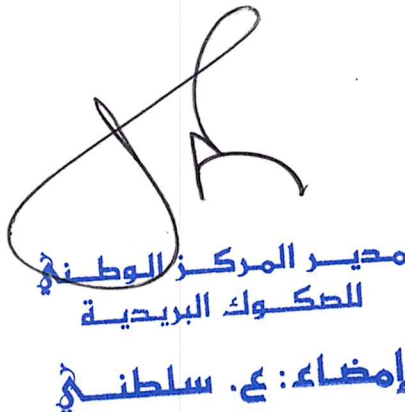 مدير المركز الوطني
للصكوك البريدية
إمضاء: ع. سلطني